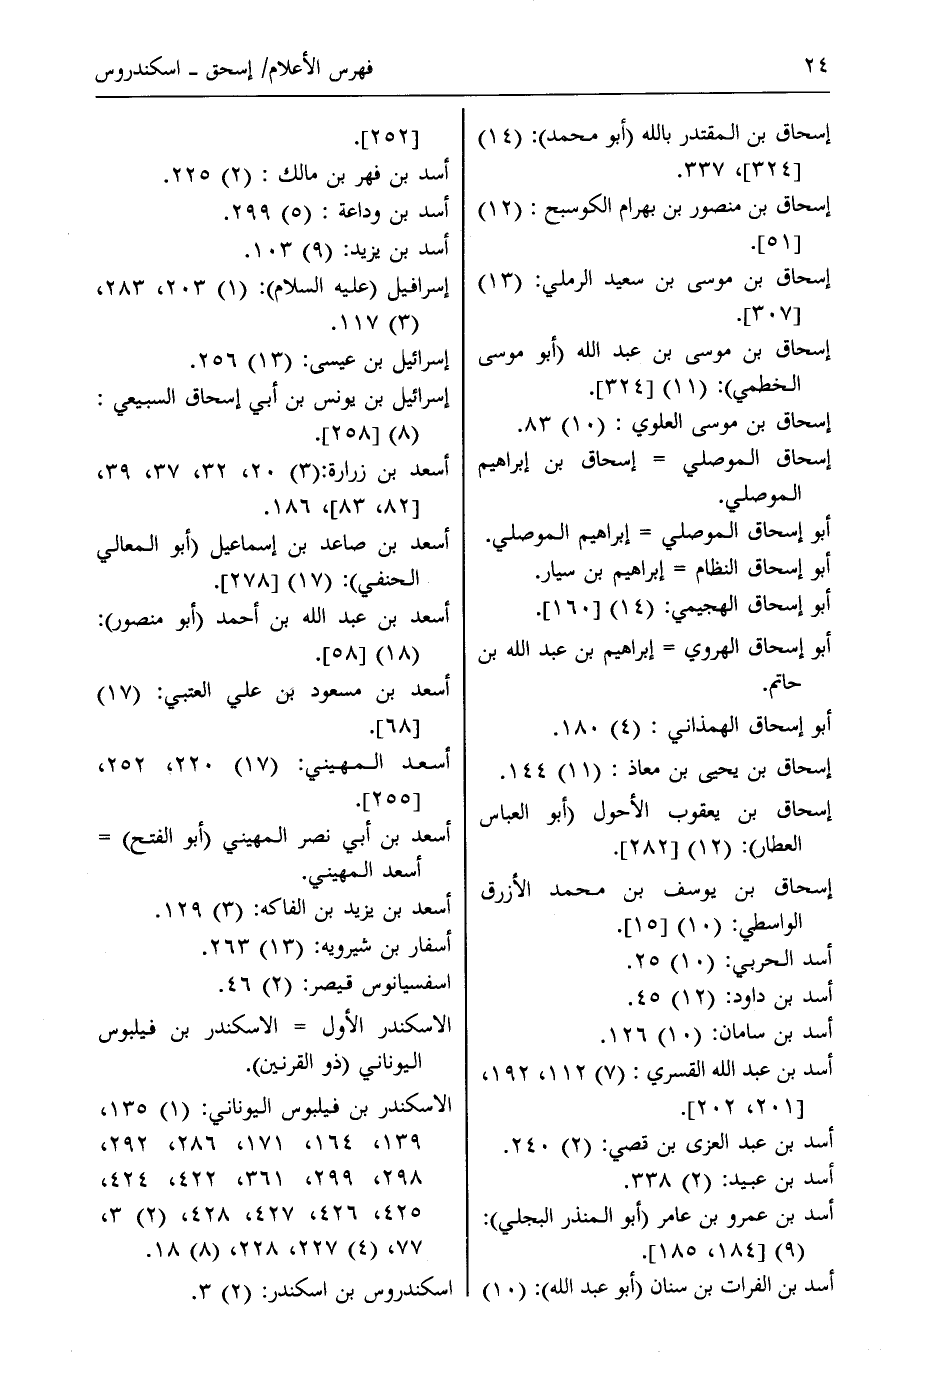 ٢٤
فهرس الأعلام/ إسحق - اسكندروس
إسحاق بن المقتدر بالله (أبو محمد): (١٤)
[٣٢٤]، ٣٣٧.
إسحاق بن منصور بن بهرام الكوسبح : (١٢)
[٥١].
إسحاق بن موسى بن سعيد الرملي: (١٣)
[٣٠٧].
إسحاق بن موسى بن عبد الله (أبو موسى
الخطمي): (١١) [٣٢٤].
إسحاق بن موسى العلوي : (١٠) ٨٣.
إسحاق الموصلي = إسحاق بن إبراهيم
الموصلي.
أبو إسحاق الموصلي = إبراهيم الموصلي.
أبو إسحاق النظام = إبراهيم بن سيار.
أبو إسحاق الهجيمي: (١٤) [١٦٠].
أبو إسحاق الهروي = إبراهيم بن عبد الله بن
حاتم.
أبو إسحاق الهمذاني : (٤) ١٨٠.
إسحاق بن يحيى بن معاذ : (١١) ١٤٤.
إسحاق بن يعقوب الأحول (أبو العباس
العطار): (١٢) [٢٨٢].
إسحاق بن يوسف بن محمد الأزرق
الواسطي: (١٠) [١٥].
أسد الحربي: (١٠) ٢٥.
أسد بن داود: (١٢) ٤٥.
أسد بن سامان: (١٠) ١٢٦.
أسد بن عبد الله القسري : (٧) ١١٢، ١٩٢،
[٢٠١، ٢٠٢].
أسد بن عبد العزى بن قصي: (٢) ٢٤٠.
أسد بن عبيد: (٢) ٣٣٨.
أسد بن عمرو بن عامر (أبو المنذر البجلي):
(٩) [١٨٤، ١٨٥].
أسد بن الفرات بن سنان (أبو عبد الله): (١٠)
[٢٥٢].
أسد بن فهر بن مالك : (٢) ٢٢٥.
أسد بن وداعة : (٥) ٢٩٩.
أسد بن يزيد: (٩) ١٠٣.
إسرافيل (عليه السلام): (١) ٢٠٣، ٢٨٣،
(٣) ١١٧.
إسرائيل بن عيسى: (١٣) ٢٥٦.
إسرائيل بن يونس بن أبي إسحاق السبيعي :
(٨) [٢٥٨].
أسعد بن زرارة:(٣) ٢٠، ٣٢، ٣٧، ٣٩،
[٨٢، ٨٣]، ١٨٦.
أسعد بن صاعد بن إسماعيل (أبو المعالي
الحنفي): (١٧) [٢٧٨].
أسعد بن عبد الله بن أحمد (أبو منصور):
(١٨) [٥٨].
أسعد بن مسعود بن علي العتبي: (١٧)
[٦٨].
أسعد المهيني: (١٧) ٢٢٠، ٢٥٢،
[٢٥٥].
أسعد بن أبي نصر المهيني (أبو الفتح) =
أسعد المهيني.
أسعد بن يزيد بن الفاكه: (٣) ١٢٩.
أسفار بن شيرويه: (١٣) ٢٦٣.
اسفسيانوس قيصر: (٢) ٤٦.
الاسكندر الأول = الاسكندر بن فيلبوس
اليوناني (ذو القرنين).
الاسكندر بن فيلبوس اليوناني: (١) ١٣٥،
١٣٩، ١٦٤، ١٧١، ٢٨٦، ٢٩٢،
٢٩٨، ٢٩٩، ٣٦١، ٤٢٢، ٤٢٤،
٤٢٥، ٤٢٦، ٤٢٧، ٤٢٨، (٢) ٣،
٧٧، (٤) ٢٢٧، ٢٢٨، (٨) ١٨.
اسكندروس بن اسكندر: (٢) ٣.